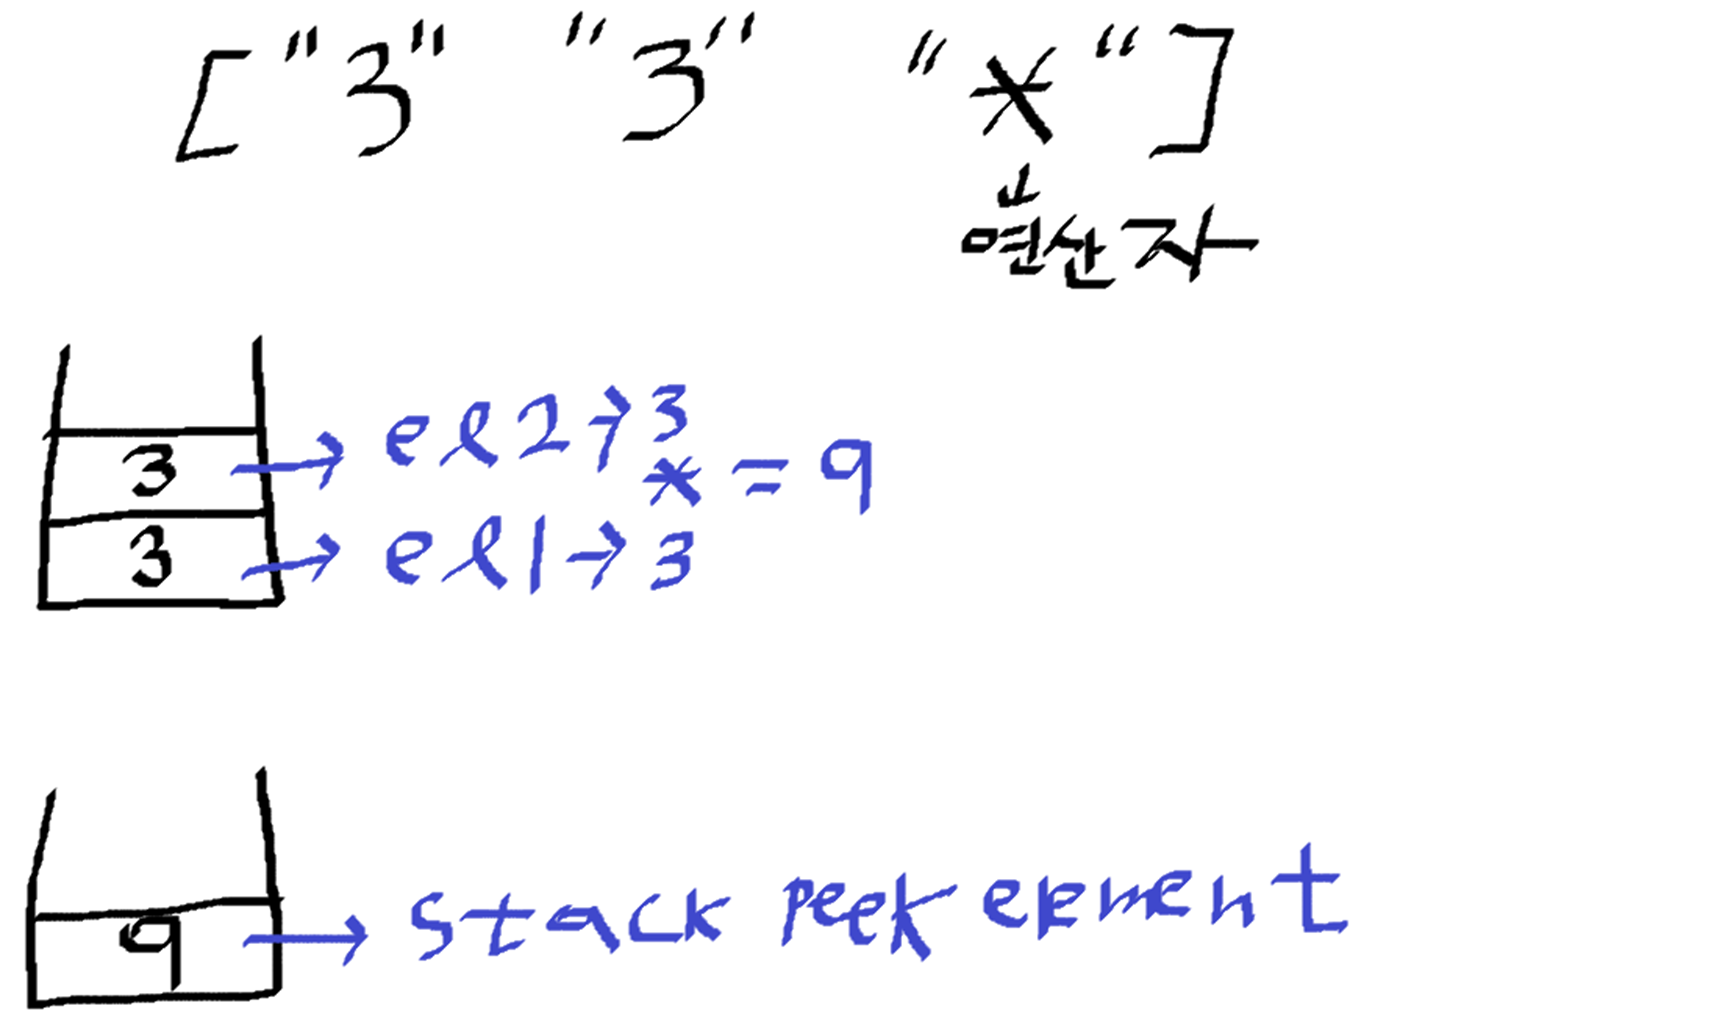 ["3" "3" "*"]
연산자
3 → el2 → 3
* = 9
3 → el1 → 3
9 → stack peek element